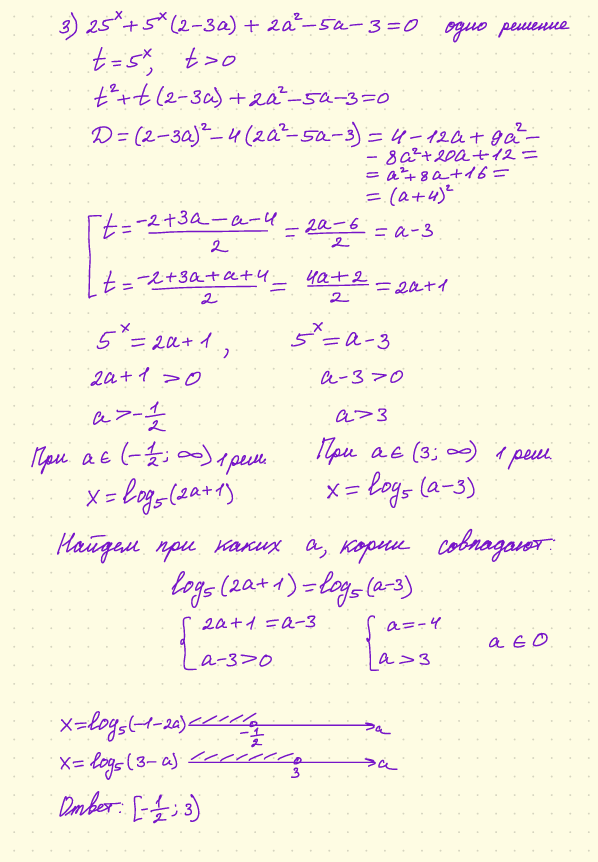 3) 25^x + 5^x (2-3a) + 2a² - 5a - 3 = 0 одно решение
t = 5^x, t > 0
t² + t(2-3a) + 2a² - 5a - 3 = 0
D = (2-3a)² - 4(2a² - 5a - 3) = 4 - 12a + 9a² -
- 8a² + 20a + 12 =
= a² + 8a + 16 =
= (a+4)²
[ t = (-2+3a-a-4)/2 = (2a-6)/2 = a-3
t = (-2+3a+a+4)/2 = (4a+2)/2 = 2a+1
5^x = 2a+1, 5^x = a-3
2a+1 > 0 a-3 > 0
a > -1/2 a > 3
При a ∈ (-1/2; ∞) 1 реш. При a ∈ (3; ∞) 1 реш.
x = log₅(2a+1) x = log₅(a-3)
Найдем при каких a, корни совпадают:
log₅(2a+1) = log₅(a-3)
{ 2a+1 = a-3 { a = -4 a ∈ 0
a-3 > 0 a > 3
x = log₅(-1-2a) -1/2 a
x = log₅(3-a) 3 a
Ответ: [-1/2; 3)